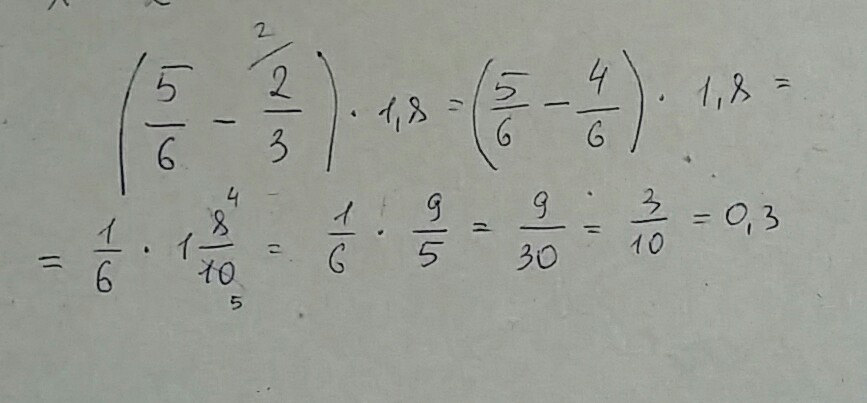 (5/6 - ²⁄ 2/3) · 1,8 = (5/6 - 4/6) · 1,8 =
= 1/6 · 1 8⁴/10₅ = 1/6 · 9/5 = 9/30 = 3/10 = 0,3